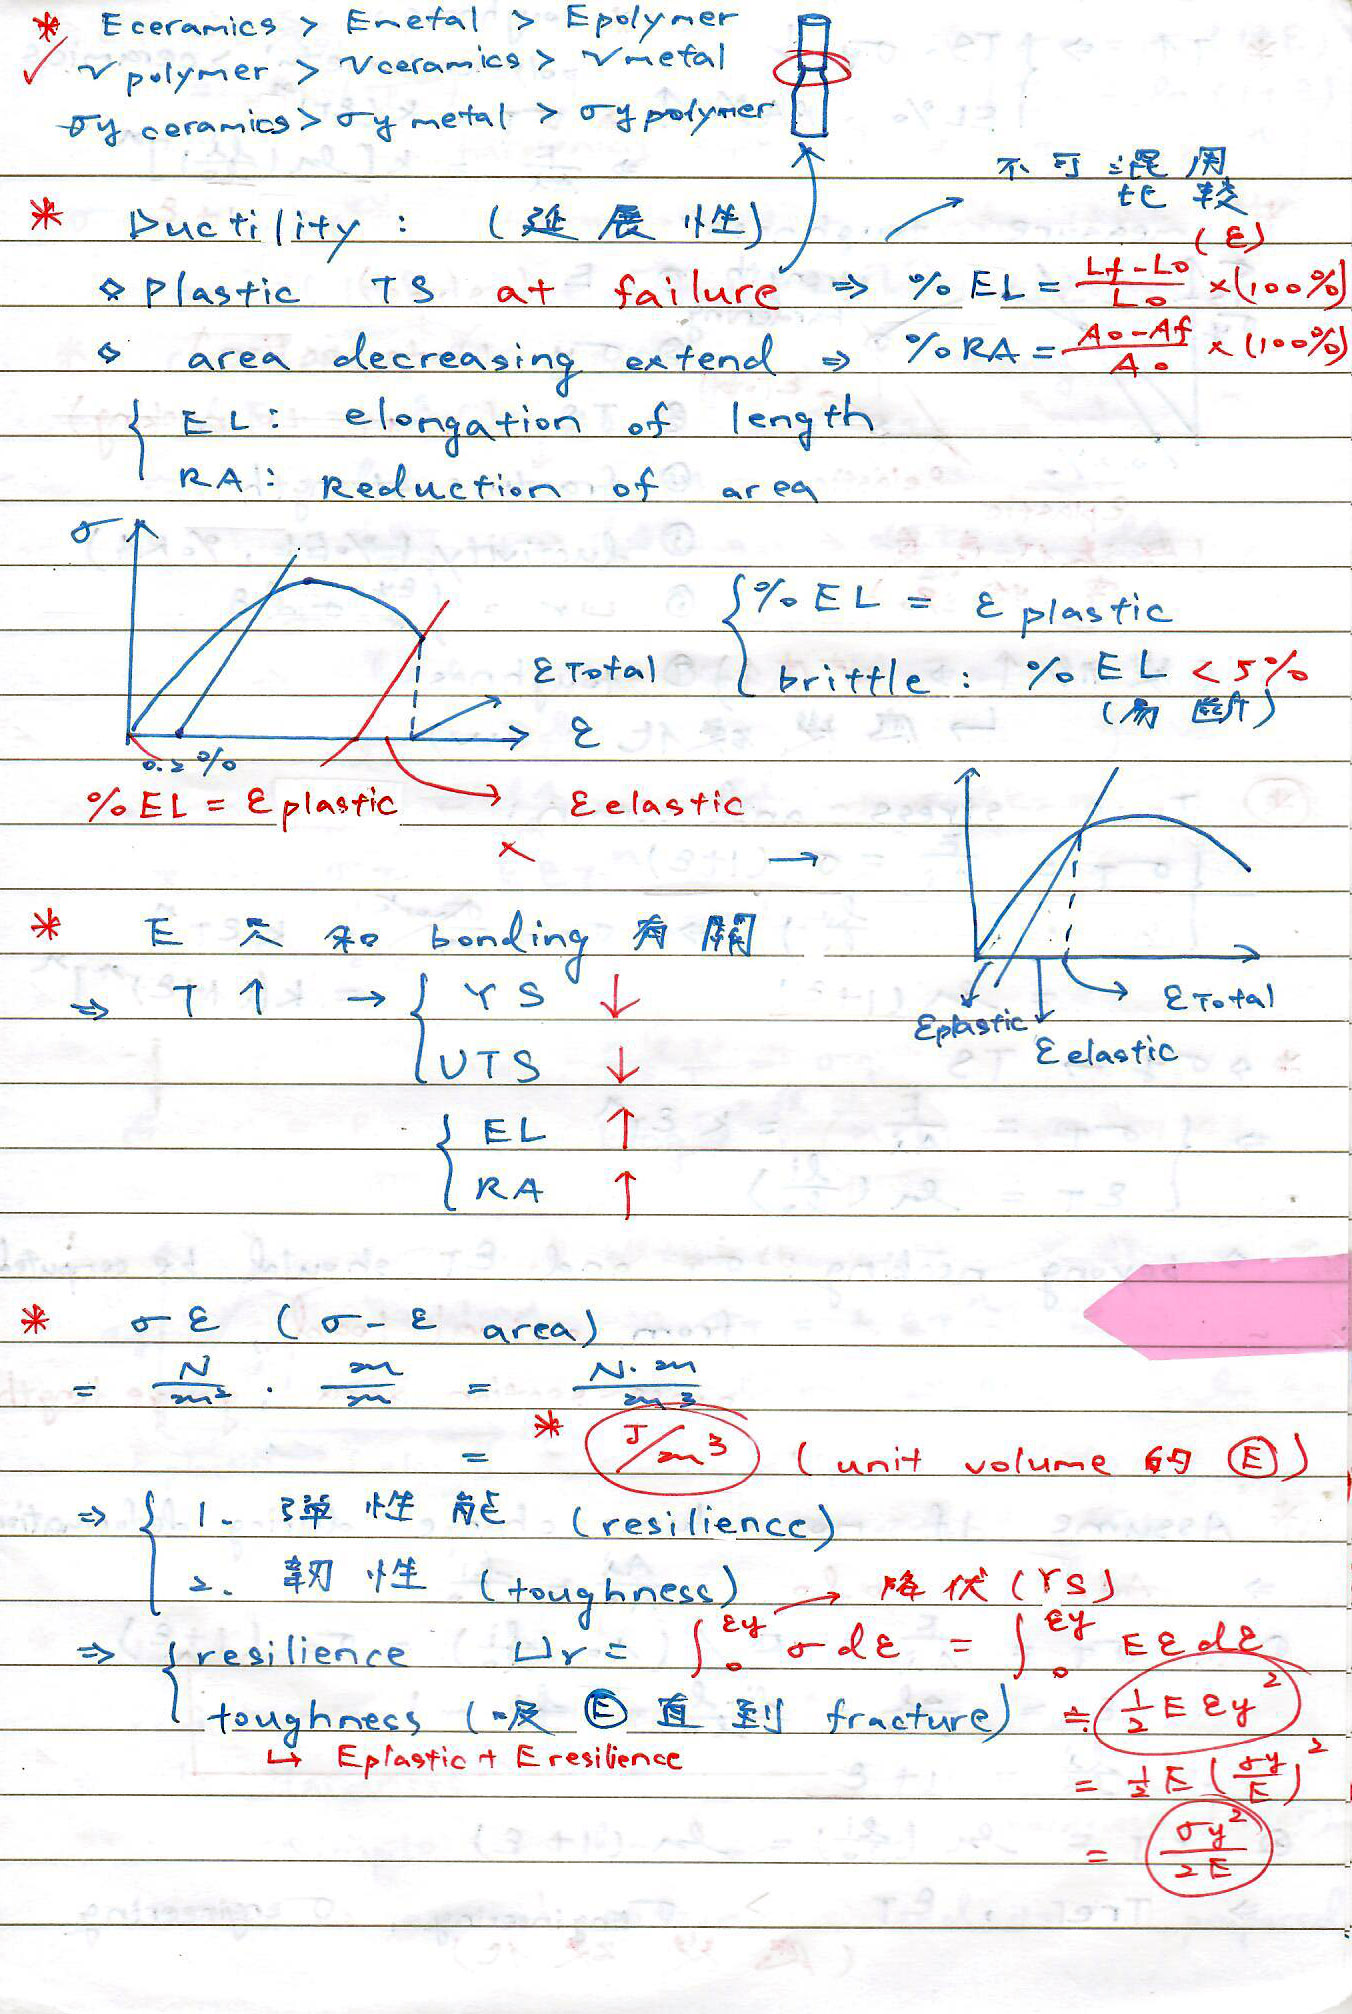 * E ceramics > E metal > E polymer
✓ ν polymer > ν ceramics > ν metal
σy ceramics > σy metal > σy polymer
不可混用
比較
* Ductility : (延展性)
(ε)
◇ plastic TS at failure ⇒ %EL = (Lf-Lo)/Lo × (100%)
◇ area decreasing extend ⇒ %RA = (Ao-Af)/Ao × (100%)
{ EL : elongation of length
RA : Reduction of area
σ
ε Total
ε
0.2%
%EL = ε plastic
ε elastic
×
{ %EL = ε plastic
brittle : %EL < 5%
(易斷)
→
ε plastic
ε elastic
ε Total
* E 只和 bonding 有關
⇒ T ↑ → { YS ↓
UTS ↓
{ EL ↑
RA ↑
* σε (σ-ε area)
= N/m² · m/m = N·m/m³
= * J/m³ (unit volume 的 Ⓔ)
⇒ { 1. 彈性能 (resilience)
2. 韌性 (toughness)
→ 降伏 (YS)
⇒ { resilience Ur = ∫₀^εy σdε = ∫₀^εy Eεdε
toughness (吸 Ⓔ 直到 fracture)
↳ E plastic + E resilience
≒ 1/2 E εy²
= 1/2 E (σy/E)²
= σy²/2E